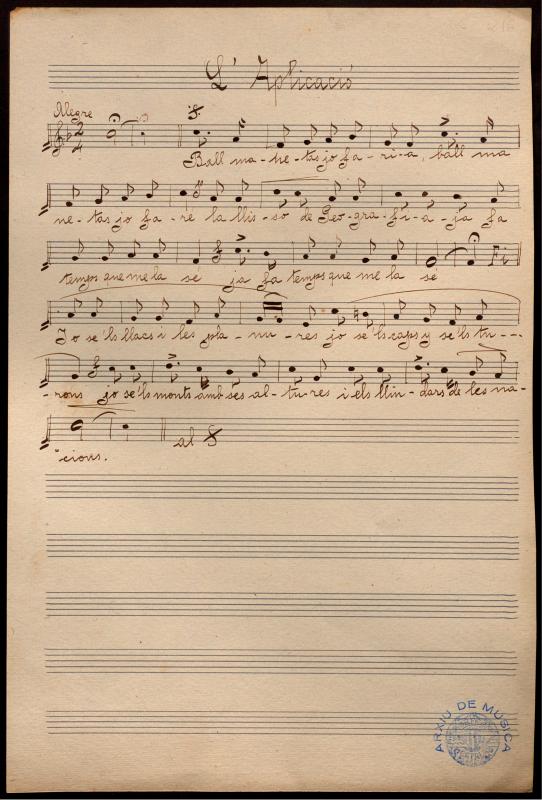 L' Aplicació
Alegre
2
4
Ball ma-ne-tas jo fa-ri-a, ball ma
ne-tas jo fa-ré la lli-só de Geo-gra-fi-a-ja fa
temps que me la sé ja fa temps que me la sé
Fi
Jo se'ls llacs i les pla-nu-res jo se'ls caps y se'ls tu---
-rons jo se'ls monts amb ses al-tu-res i els llin-dars de les na-
cions.
al
ARXIU DE MÚSICA